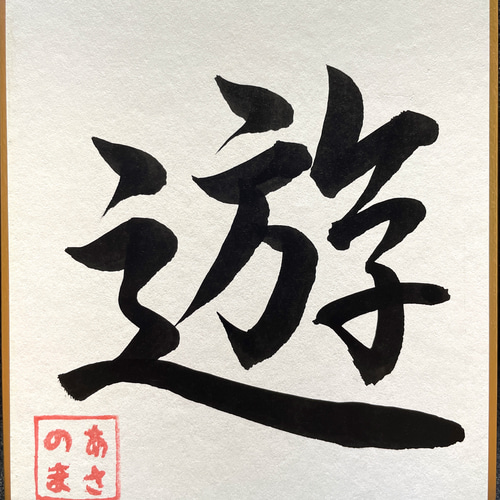 遊
あさ
のま